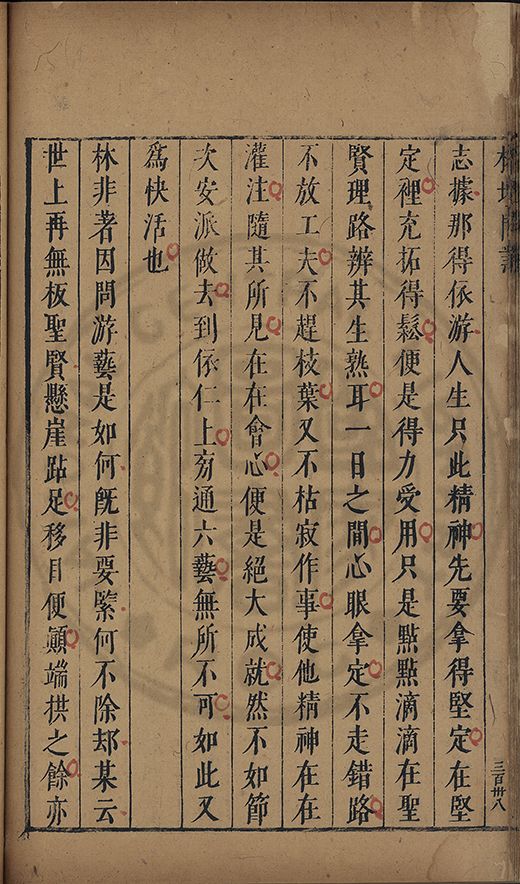 榕壇問業
志據那得依游人生只此精神先要拿得堅定在堅
定裡充拓得鬆便是得力受用只是點點滴滴在聖
賢理路辨其生熟耳一日之間心眼拿定不走錯路
不放工夫不趕枝葉又不枯寂作事使他精神在在
灌注隨其所見在在會心便是絕大成就然不如節
次安派做去到依仁上㫄通六藝無所不可如此又
爲快活也
林非著因問游藝是如何旣非要緊何不除却某云
世上再無板聖賢懸崖跕足移目便顚端拱之餘亦
三百卅八